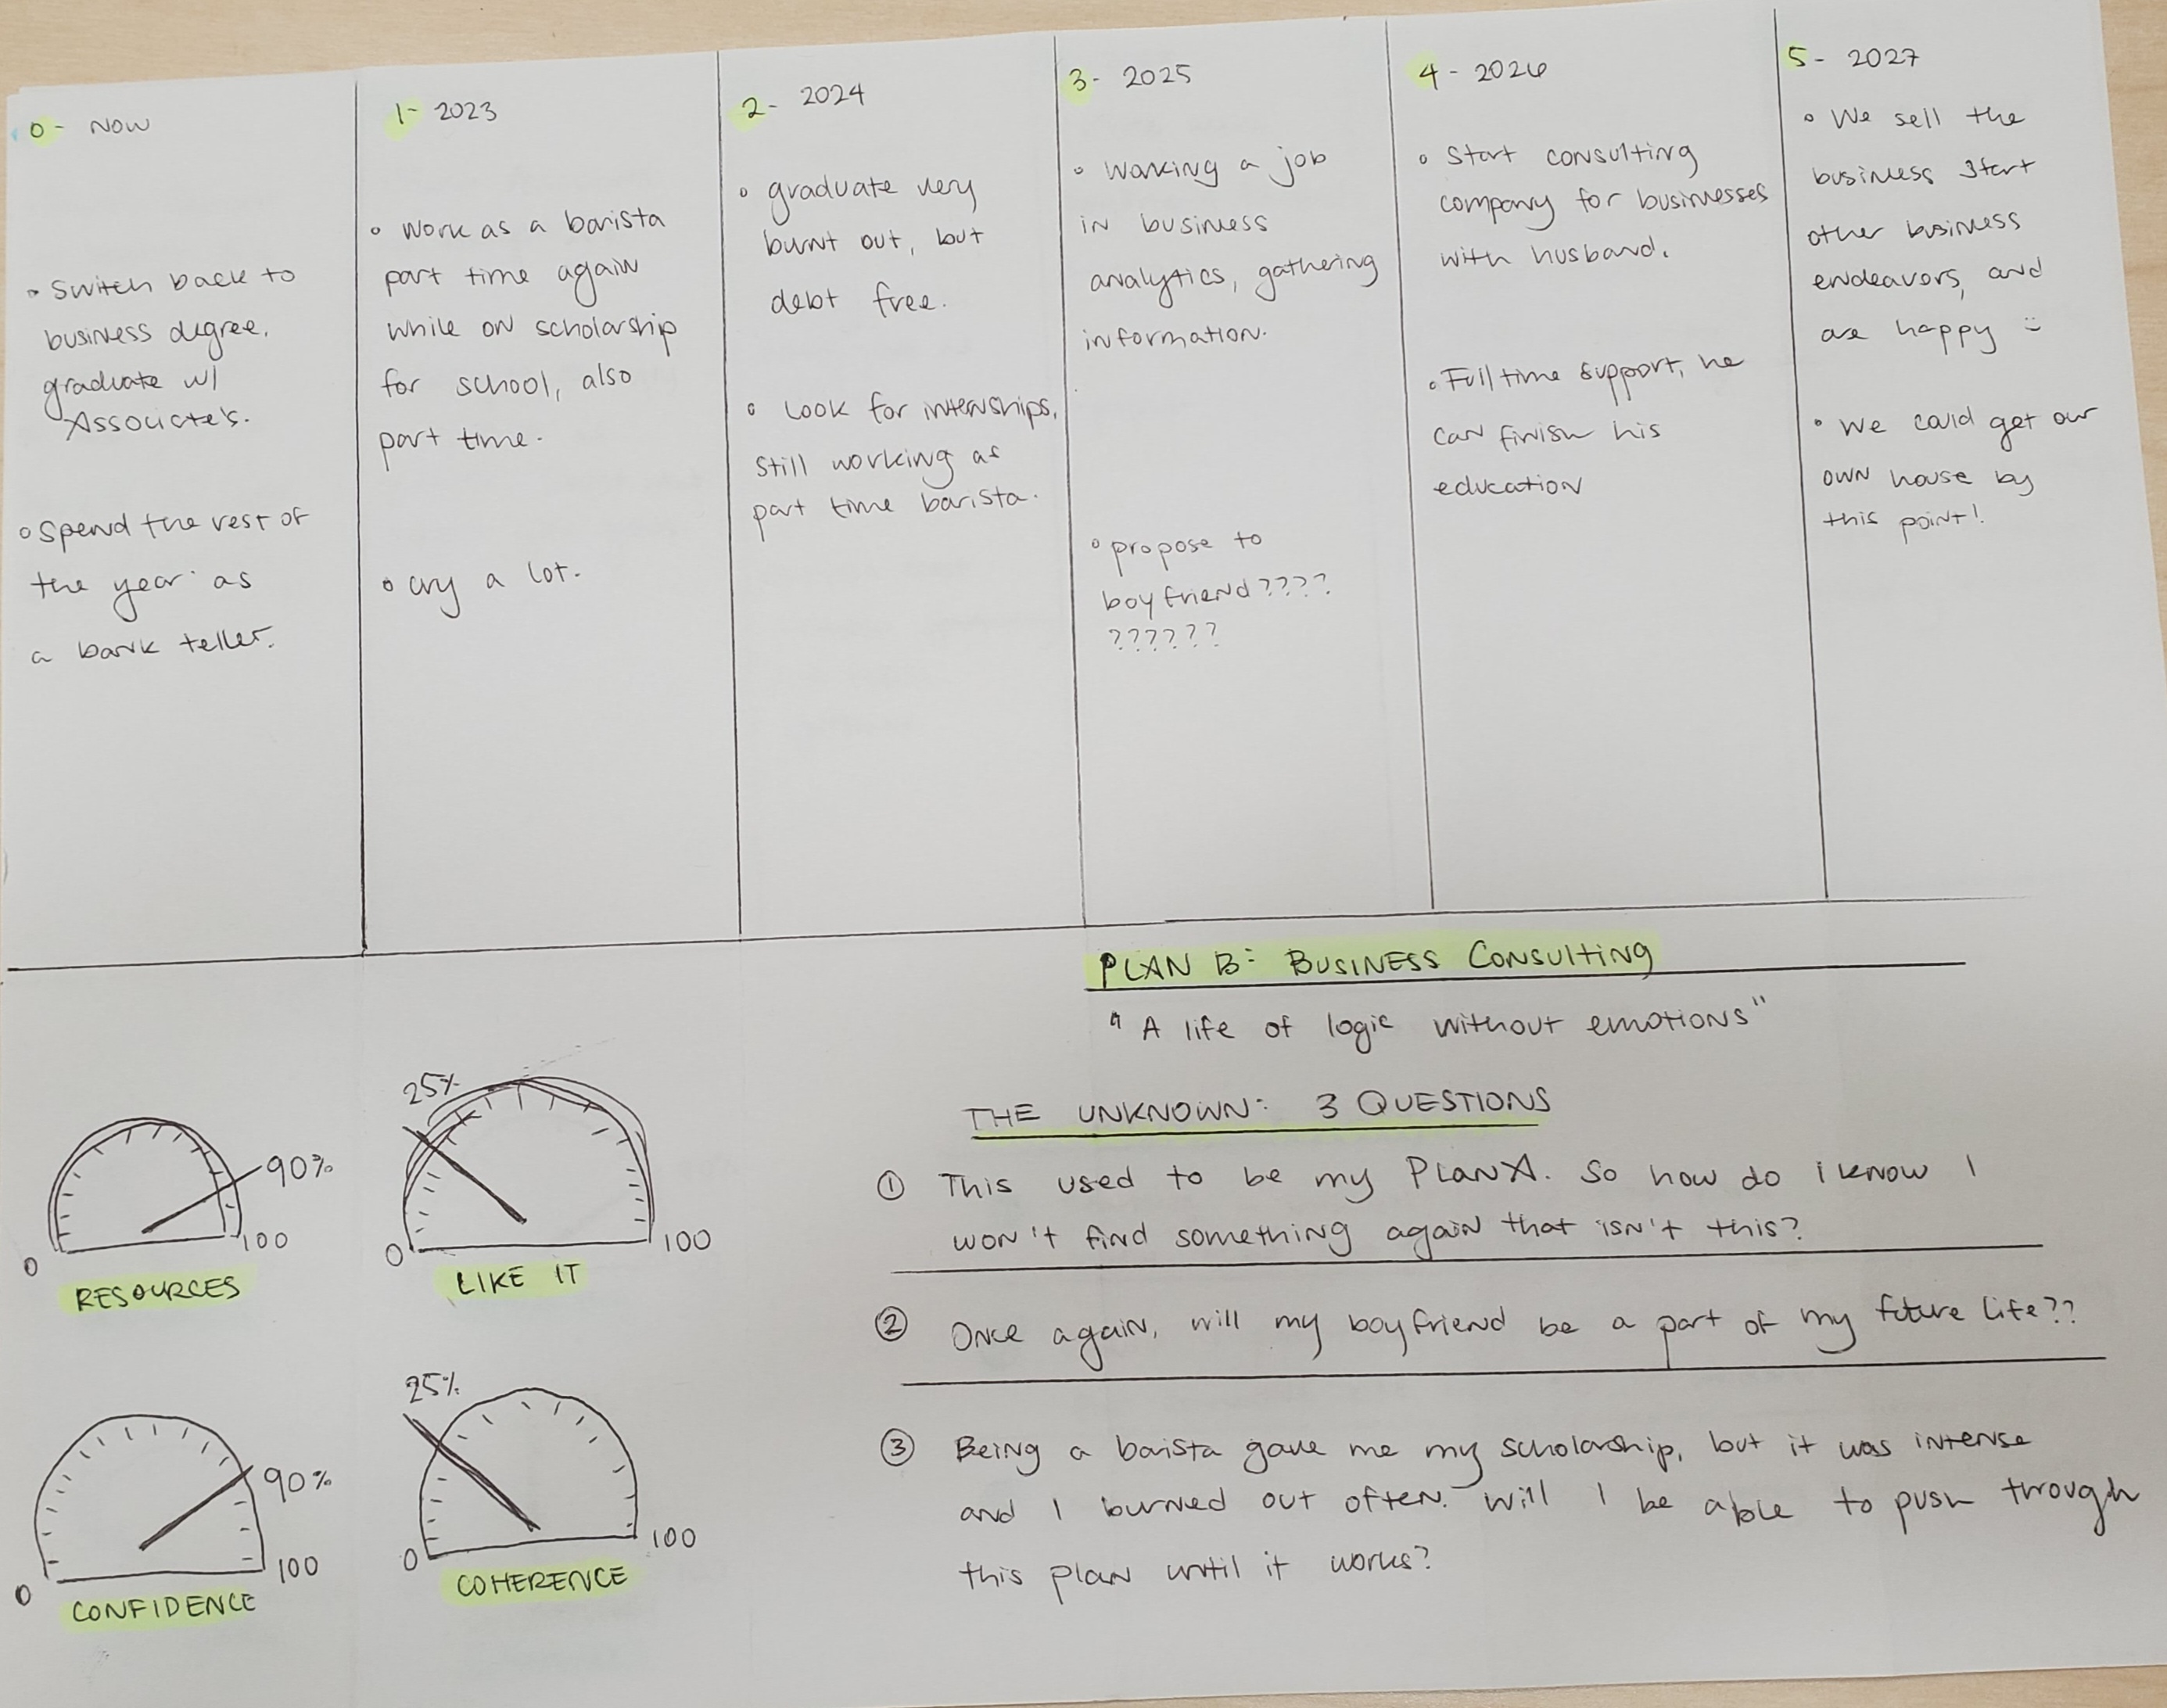 0 - NOW
• Switch back to
business degree,
graduate w/
Associate's.
• Spend the rest of
the year as
a bank teller.
1- 2023
• Work as a barista
part time again
while on scholarship
for school, also
part time.
• cry a lot.
2- 2024
• graduate very
burnt out, but
debt free.
• Look for internships,
still working as
part time barista.
3- 2025
• Working a job
in business
analytics, gathering
information.
• propose to
boyfriend????
??????
4 - 2026
• Start consulting
company for businesses
with husband.
• Full time support, he
can finish his
education
5- 2027
• We sell the
business start
other business
endeavors, and
are happy :)
• We could get our
own house by
this point!
PLAN B: BUSINESS CONSULTING
"A life of logic without emotions"
THE UNKNOWN: 3 QUESTIONS
① This used to be my PLAN A. So how do i know I
won't find something again that isn't this?
② Once again, will my boyfriend be a part of my future life??
③ Being a barista gave me my scholarship, but it was intense
and I burned out often. Will I be able to push through
this plan until it works?
90%
0
100
RESOURCES
25%
0
100
LIKE IT
90%
0
100
CONFIDENCE
25%
0
100
COHERENCE